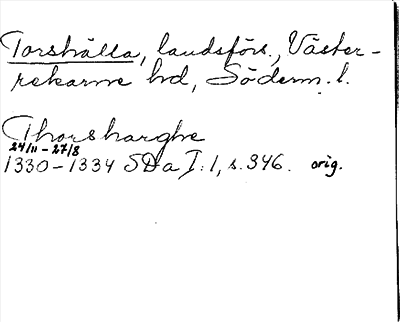 Torshälla, landsförs., Väster-
rekarne hd, Söderm. l.
Thorsharghe
24/11-27/8
1330-1334 SDa I:1, s. 346. orig.